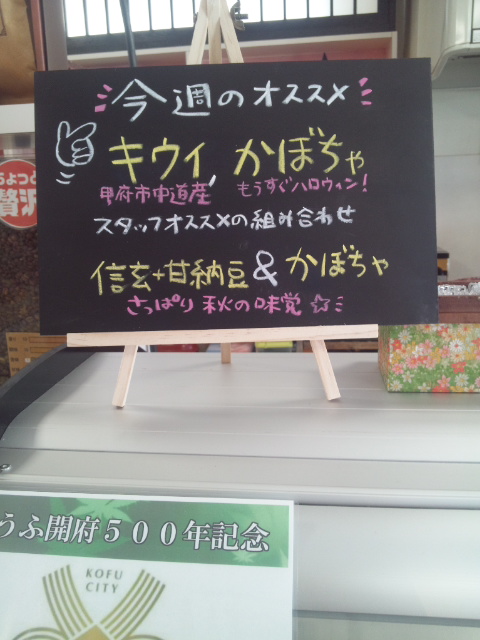 今週のオススメ
キウイ,かぼちゃ
甲府市中道産 もうすぐハロウィン!
スタッフオススメの組み合わせ
信玄+甘納豆&かぼちゃ
さっぱり 秋の味覚
ちょっと
贅沢
うふ開府500年記念
KOFU
CITY